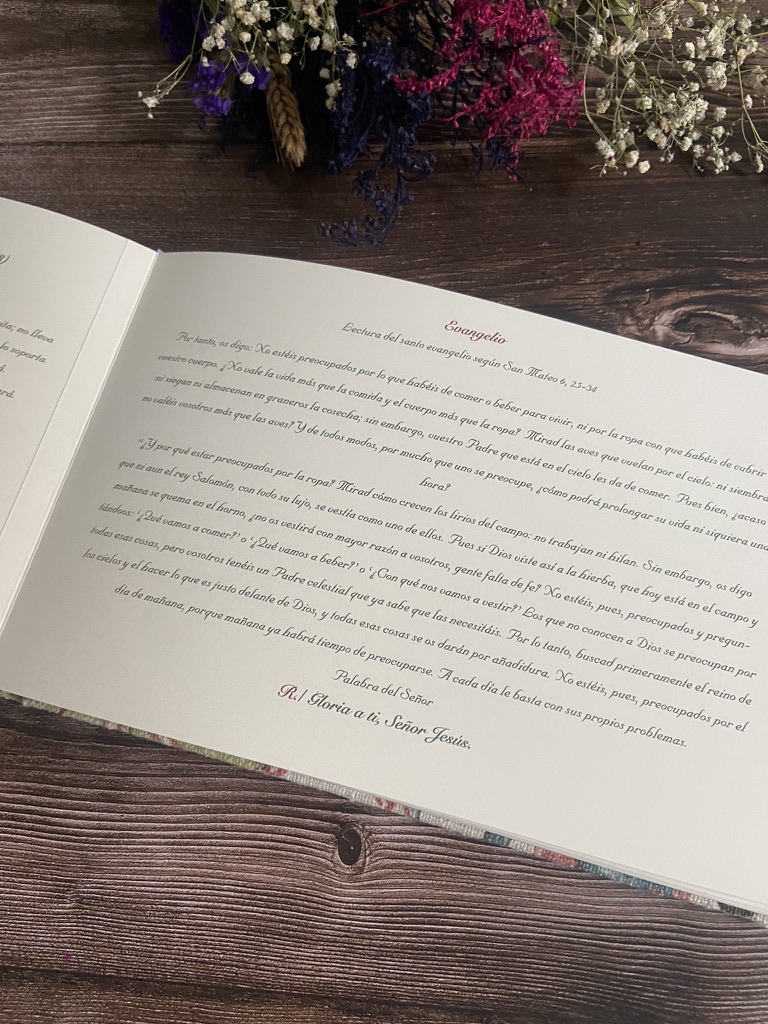 ita; no lleva
lo soporta.
Evangelio
Lectura del santo evangelio según San Mateo 6, 25-34
Por tanto, os digo: No estéis preocupados por lo que habéis de comer o beber para vivir, ni por la ropa con que habéis de cubrir
vuestro cuerpo. ¿No vale la vida más que la comida y el cuerpo más que la ropa? Mirad las aves que vuelan por el cielo: ni siembra
ni siegan ni almacenan en graneros la cosecha; sin embargo, vuestro Padre que está en el cielo les da de comer. Pues bien, ¿acaso
no valéis vosotros más que las aves? Y de todos modos, por mucho que uno se preocupe, ¿cómo podrá prolongar su vida ni siquiera una
hora?
“¿Y por qué estar preocupados por la ropa? Mirad cómo crecen los lirios del campo: no trabajan ni hilan. Sin embargo, os digo
que ni aun el rey Salomón, con todo su lujo, se vestía como uno de ellos. Pues si Dios viste así a la hierba, que hoy está en el campo y
mañana se quema en el horno, ¿no os vestirá con mayor razón a vosotros, gente falta de fe? No estéis, pues, preocupados y pregun-
tándoos: ‘¿Qué vamos a comer?’ o ‘¿Qué vamos a beber?’ o ‘¿Con qué nos vamos a vestir?’ Los que no conocen a Dios se preocupan por
todas esas cosas, pero vosotros tenéis un Padre celestial que ya sabe que las necesitáis. Por lo tanto, buscad primeramente el reino de
los cielos y el hacer lo que es justo delante de Dios, y todas esas cosas se os darán por añadidura. No estéis, pues, preocupados por el
día de mañana, porque mañana ya habrá tiempo de preocuparse. A cada día le basta con sus propios problemas.
Palabra del Señor
R./ Gloria a ti, Señor Jesús.